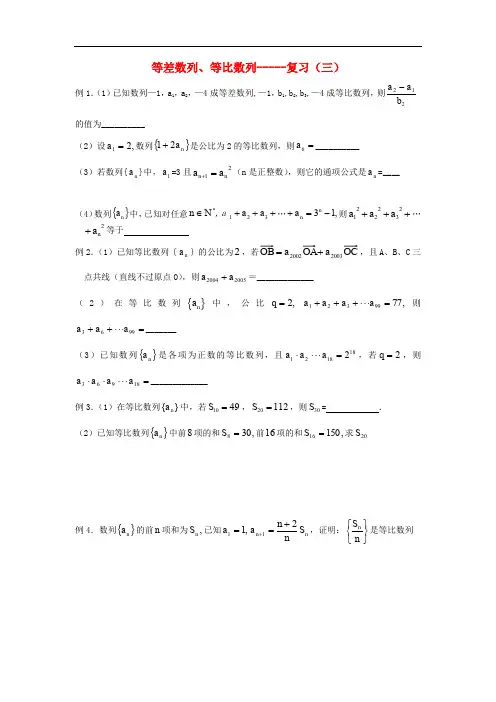 等差数列、等比数列-----复习（三）
例1.（1）已知数列—1，a₁，a₂，—4成等差数列,—1，b₁,b₂,b₃,—4成等比数列，则 (a₂－a₁)/b₂
的值为__________
（2）设a₁＝2,数列{1＋2aₙ}是公比为2的等比数列，则a₆＝__________
（3）若数列{aₙ}中，a₁=3且aₙ₊₁＝aₙ²（n是正整数），则它的通项公式是aₙ=____
（4）数列{aₙ}中,已知对任意n∈N*,a₁＋a₂＋a₃＋…＋aₙ＝3ⁿ－1,则a₁²＋a₂²＋a₃²＋…
＋aₙ²等于
例2.（1）已知等比数列｛aₙ｝的公比为2，若OB＝a₂₀₀₂OA＋a₂₀₀₃OC，且A、B、C三
点共线(直线不过原点O)，则a₂₀₀₄＋a₂₀₀₅＝_____________
（2）在等比数列{aₙ}中，公比q＝2, a₁＋a₂＋a₃＋⋯a₉₉＝77, 则
a₃＋a₆＋⋯a₉₉＝_______
（3）已知数列{aₙ}是各项为正数的等比数列，且a₁·a₂⋯a₁₈＝2¹⁸，若q＝2，则
a₃·a₆·a₉⋯a₁₈＝_____________
例3.（1）在等比数列{aₙ}中，若S₁₀＝49，S₂₀＝112，则S₃₀= .
（2）已知等比数列{aₙ}中前8项的和S₈＝30,前16项的和S₁₆＝150,求S₂₀
例4．数列{aₙ}的前n项和为Sₙ,已知a₁＝1,aₙ₊₁＝(n＋2)/n Sₙ，证明：{Sₙ/n}是等比数列